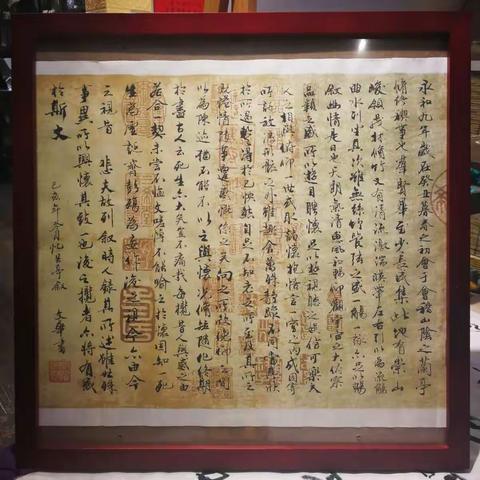 永和九年歲在癸丑暮春之初會于會稽山陰之蘭亭
脩稧事也群賢畢至少長咸集此地有崇山
峻領茂林脩竹又有清流激湍映帶左右引以為流觴
曲水列坐其次雖無絲竹管弦之盛一觴一詠亦足以暢
敘幽情是日也天朗氣清惠風和暢仰觀宇宙之大俯察
品類之盛所以遊目騁懷足以極視聽之娛信可樂夫
人之相與俯仰一世或取諸懷抱悟言一室之內或因寄
所託放浪形骸之外雖趣舍萬殊靜躁不同當其欣
於所遇暫得於己快然自足不知老之將至及其所
既惓情隨事遷感慨係之矣向之所欣俛仰之間
以為陳迹猶不能不以之興懷況脩短隨化終期
於盡古人云死生亦大矣豈不痛哉每攬昔人興感之由
若合一契未嘗不臨文嗟悼不能喻之於懷固知一死
生為虛誕齊彭殤為妄作後之視今亦由今
之視昔 悲夫故列敘時人錄其所述雖世殊
事異所以興懷其致一也後之攬者亦將有感
於斯文
己亥年
文華書